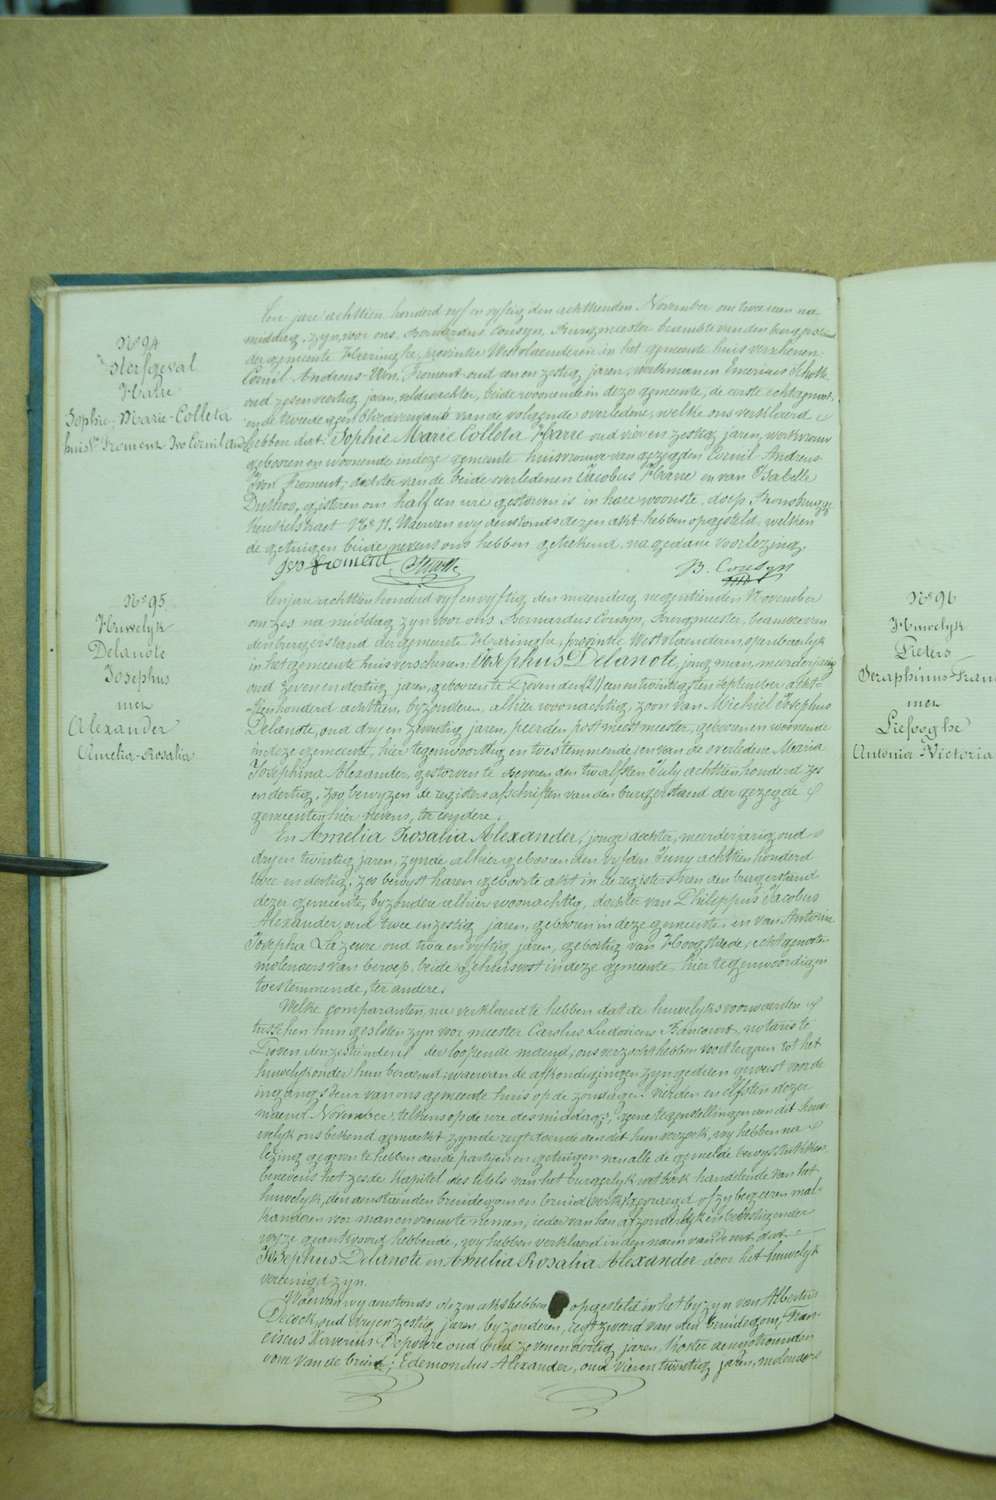 N° 94
Sterfgeval
Harre
Sophie-Marie-Colleta
huis.^w Froment Ivo Cornil And
Ten jare achttien honderd vyf en vyftig den achttienden November om twee uren na
middag, zyn voor ons Bernardus Cousyn, Burgmeester beambte van den burgerstand
der gemeente Vleeringhe, provintie Westvlaenderen in het gemeente huis verschenen
Cornil Andreas Ivon Froment oud een en zestig jaren, werkman en
oud zesenveertig jaren, veldwachter, beide woonende in deze gemeente, de eerste echtgenoot,
ende tweede gen van de volgende overledene, welke ons verklaerd
hebben dat Sophie Marie Colleta Harre oud vier en zestig jaren, werkvrouw
geboren en woonende in deze gemeente huisvrouwe van gezegden Cornil Andreas
Ivon Froment, dochter van de beide overledenen Jacobus Harre en van Isabelle
gisteren om half een ure gestorven is in hare woonste, dorp
N° 11. Waervan wy aenstonds dezen akt hebben opgesteld, welken
de getuigen beide nevens ons hebben geteekend, na gedane voorlezing.
Ivo froment B. Cousyn
N° 95
Huwelyk
Delanote
Josephus
met
Alexander
Amelia-Rosalia
Ten jare achttien honderd vyf en vyftig den maendag negentienden November
om zes na middag zyn voor ons Bernardus Cousyn, Burgmeester, beambte van
den burgerstand der gemeente Vleeringhe, provintie Westvlaenderen, openbaerlyk
in het gemeente huis verschenen: Josephus Delanote, jongman, meerderjarig
oud zeven en dertig jaren, geboren te Loven den (21) een en twintigsten September acht-
tien honderd achttien, byzonderen, alhier woonachtig, zoon van Michiel Josephus
Delanote, oud dry en zeventig jaren, peerden postmeestmeester, geboren en woonende
in deze gemeente, hier tegenwoordig en toestemmende, en van de overledene Maria
Josephina Alexander, gestorven te den twaelfsten July achttien honderd zes
en dertig, zoo bewyzen de registers afschriften van den burgerstand der gezegde
gemeenten hier nevens, ter eendere.
En Amelia Rosalia Alexander, jonge dochter, meerderjarig, oud
dry en twintig jaren, zynde alhier geboren den vyfden Juny achttien honderd
twee en dertig, zoo bewyst haren geboorte akt in de registers van den burgerstand
dezer gemeente, byzondere alhier woonachtig, dochter van Philippus Jacobus
Alexander, oud twee en zestig jaren, geboren in deze gemeente, en van Antonia
Josepha Lazeure oud twee en vyftig jaren, geboortig van Hoogstaede, echtgenoten
molenaers van beroep, beide gehuisvest in deze gemeente, hier tegenwoordig en
toestemmende, ter andere.
Welke comparanten, na verklaerd te hebben dat de huwelyksvoorwaerden
tusschen hun gesloten zyn voor meester Carolus Ludovicus notaris te
den zestienden der loopende maend, ons verzocht hebben voort te gaen tot het
huwelyk onder hun beraemd, waervan de afkondigingen zyn gedaen geweest voor de
ingangdeur van ons gemeente huis op de zondagen vierden en elfsten dezer
maend November, telkens op de ure des middags; geene tegenstellingen aen dit huwe
welyk ons bekend gemaekt zynde regt doende aen dit hun verzoek, wy hebben na
lezing gegeven te hebben aende partyen en getuigen van alle de gemelde bewysstukken
benevens het zesde kapitel des titels van het burgerlyk wetboek handelende van het
huwelyk, den aenstaenden bruidegom en bruid gevraegd of zy begeeren mal-
kanderen voor man en vrouw te nemen, ieder van hen afzonderlyk en bevestigender
wyze geantwoord hebbende, wy hebben verklaerd in den naem van de wet dat
Josephus Delanote en Amelia Rosalia Alexander door het huwelyk
vereenigd zyn.
Waervan wy aenstonds dezen akt hebben opgesteld in het by zyn van Albertus
Decock, oud dry en zestig jaren, byzonderen, van den bruidegom, Fran-
ciscus Xaverius Depuere oud zeven en veertig jaren, koster aengekomenden
oom van de bruid; Edemondus Alexander, oud vier en twintig jaren, molenaers
N° 96
Huwelyk
Pieters
Seraphinus-Fran
met
Liefooghe
Antonia-Victoria